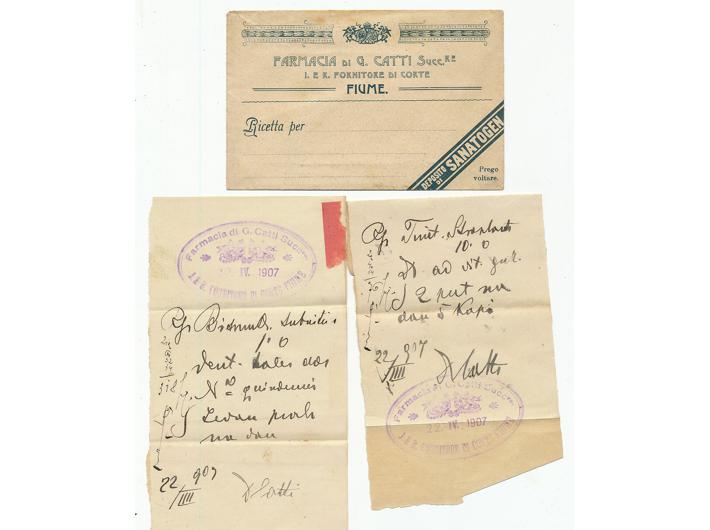 FARMACIA DI G. CATTI Succ.RE
I. E R. FORNITORE DI CORTE
FIUME.
Ricetta per
DEPOSITO DI SANATOGEN
Prego
voltare.
Farmacia di G. Catti Succ.
22. IV. 1907
I. E R. FORNITORE DI CORTE FIUME
Rp Bismuth. subnitr.
1.0
dent. tales dos
No
na dan
22/IIII 907
D Catti
Rp Tinct. Strophanti
10.0
D. ad vit. gutt.
S 2 put na
dan 5 kapi
22/IIII 907
D Catti
Farmacia di G. Catti Succ.
22. IV. 1907
I. E R. FORNITORE DI CORTE FIUME